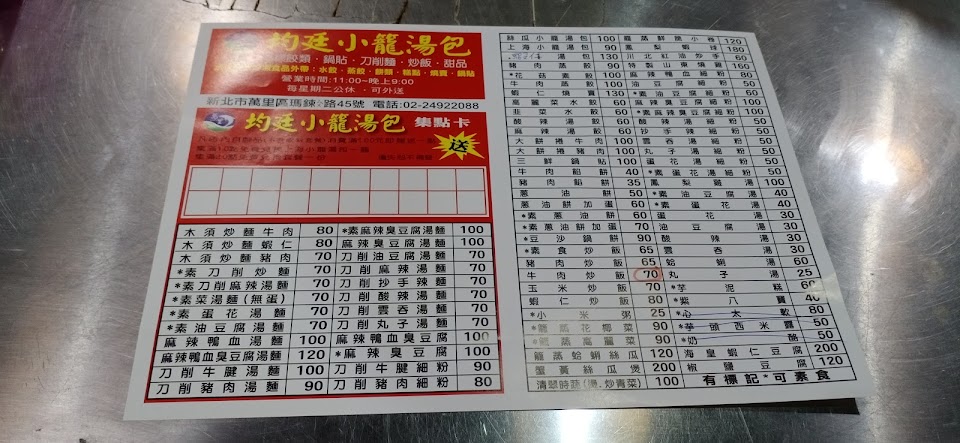 均廷小籠湯包
餃類·鍋貼·刀削麵·炒飯·甜品
食品外帶:水餃·蒸餃·餅類·糕點·燒賣·鍋貼
營業時間:11:00~晚上9:00
每星期二公休·可外送
新北市萬里區瑪鋉路45號 電話:02-24922088
均廷小籠湯包 集點卡
送
木須炒麵牛肉 80
木須炒麵蝦仁 80
木須炒麵豬肉 70
*素刀削炒麵 70
*素刀削麻辣湯麵 70
*素菜湯麵(無蛋) 70
*素蛋花湯麵 70
*素油豆腐湯麵 70
麻辣鴨血湯麵 100
麻辣鴨血臭豆腐湯麵 120
刀削牛腱湯麵 100
刀削豬肉湯麵 90
*素麻辣臭豆腐湯麵 100
麻辣臭豆腐湯麵 100
刀削油豆腐湯麵 70
刀削麻辣湯麵 70
刀削抄手辣麵 70
刀削酸辣湯麵 70
刀削雲吞湯麵 70
刀削丸子湯麵 70
麻辣鴨血臭豆腐 100
*麻辣臭豆腐 90
刀削牛腱細粉 90
刀削豬肉細粉 80
絲瓜小籠湯包 100
上海小籠湯包 90
湯包 130
豬肉蒸餃 80
*花菇素餃 100
牛肉蒸餃 100
蝦仁燒賣 130
高麗菜水餃 60
韭菜水餃 60
酸辣湯餃 60
麻辣湯餃 60
大餅捲牛肉 100
大餅捲豬肉 100
三鮮鍋貼 100
牛肉餡餅 40
豬肉餡餅 35
蔥油餅 50
蔥油餅加蛋 60
*素蔥油餅 60
*素蔥油餅加蛋 70
*豆沙鍋餅 90
*素食炒飯 65
豬肉炒飯 65
牛肉炒飯 70
玉米炒飯 70
蝦仁炒飯 80
*小米粥 25
*籠蒸花椰菜 90
*籠蒸高麗菜 90
籠蒸蛤蜊絲瓜 120
蟹黃絲瓜煲 200
清翠時蔬(湯.炒青菜) 100
籠蒸鮮脆小卷 120
鳳梨蝦球 180
川北紅油炒手 60
特製山東燒雞 160
麻辣鴨血細粉 80
油豆腐細粉 50
*素油豆腐細粉 50
麻辣臭豆腐細粉 80
*素麻辣臭豆腐細粉 80
酸辣細粉 50
抄手辣細粉 50
雲吞湯細粉 50
丸子湯細粉 50
蛋花湯細粉 50
*素蛋花湯細粉 50
鳳梨雞湯 100
*素油豆腐湯 40
*素蛋花湯 40
蛋花湯 30
油豆腐湯 30
酸辣湯 30
雲吞湯 30
蛤蜊湯 50
丸子湯 25
*芋泥糕 60
*紫八寶 40
*心太軟 80
*芋頭西米露 50
*奶酪 50
海皇蝦仁豆腐 200
椒鹽豆腐 120
有標記*可素食